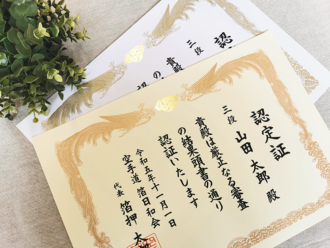 認定証
三段 山田 太郎 殿
貴殿は厳正なる審査
の結果頭書の通り
認証いたします
令和五年十一月一日
空手道 箔日和会
代表 箔押 太
認
三段
貴殿
の